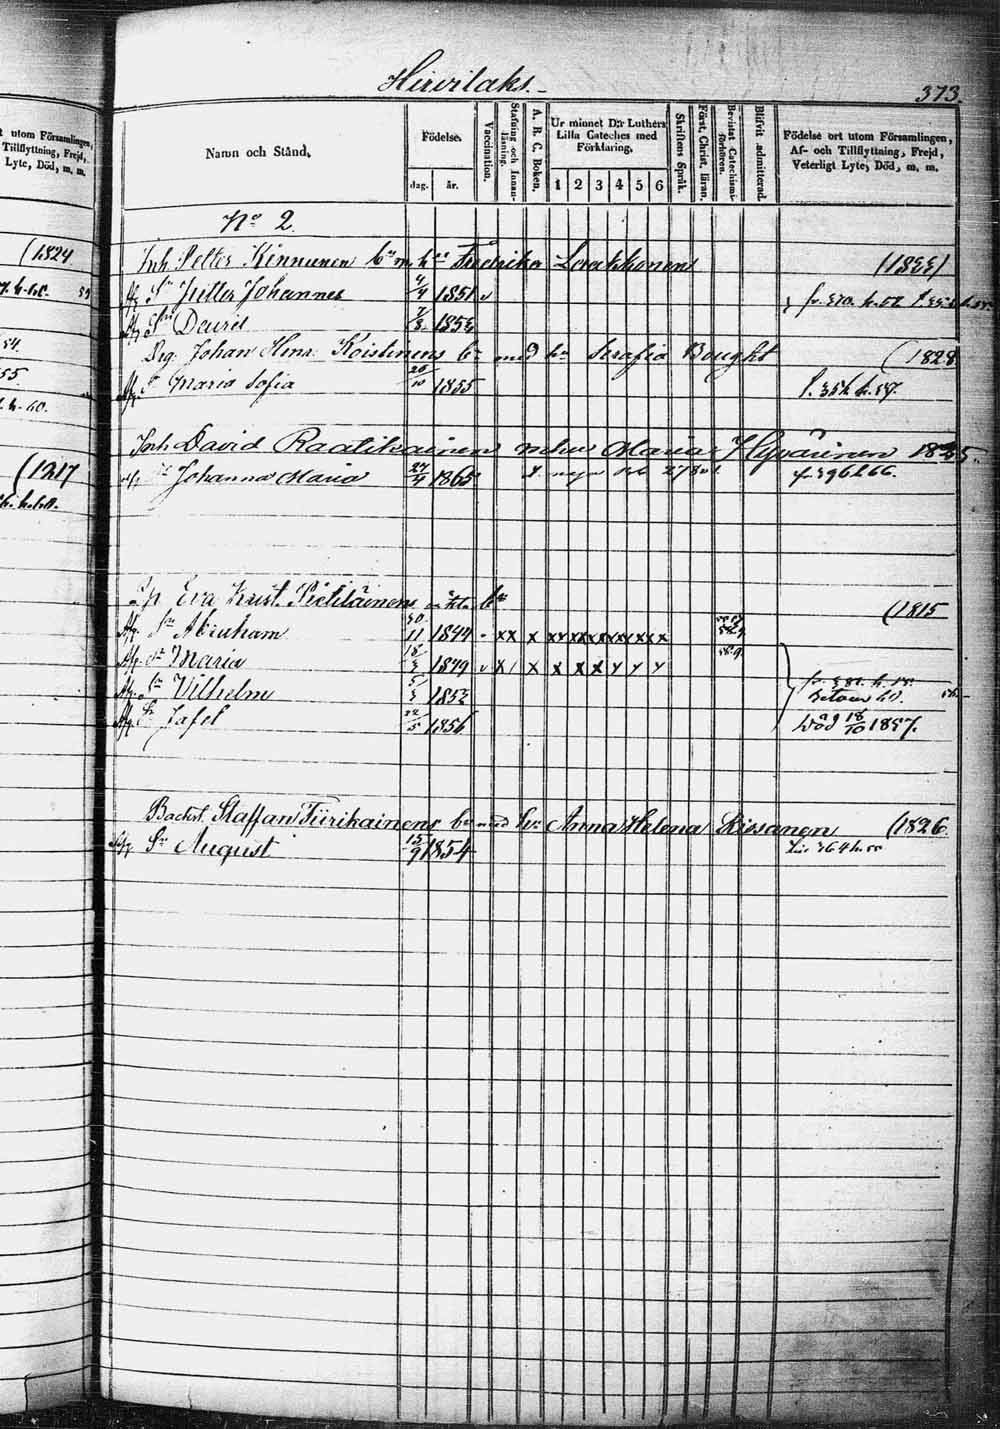 Hirvilaks.
373.
t utom Församlingen,
Tillflyttning, Frejd,
Lyte, Död, m. m.
Namn och Stånd.
Födelse.
dag.
år.
Vaccination.
Stafning och Innanläsning.
A. B. C. Boken.
Ur minnet D:r Luthers
Lilla Catechès med
Förklaring.
1 2 3 4 5 6
Skriftens Språk.
Först. Christ. läran.
Bevistat Catechismiförhören.
Blifvit admitterad.
Födelse ort utom Församlingen,
Af- och Tillflyttning, Frejd,
Veterligt Lyte, Död, m. m.
No 2.
(1824
Inh. Petter Kinnunen bn m. hu Fredrika Laakkonen (1833)
Sn Petter Johannes 4/4 1851
Sn Daured 7/8 1853
Drg. Johan Henr. Koistinens bn med hu Serafia Bought (1828
D. Maria Sofia 26/10 1855 f. 354 h. 57.
Inh David Raatikainen m hu Maria Hyvärinen 1835.
Dr Johanna Maria 24/4 1865 fr 396 h 66.
(1217
Eva Krist. Pietiläinens o ä kta bn (1815
Sn Abraham 30/11 1844 - xx x xx xx xx xx x x x
Dr Maria 18/3 1849 v x / x x x x x x x
Sn Vilhelm 5/3 1853
Sn Jafet 22/5 1856 död 18/10 1857.
Backst. Staffan Tiirikainens bn med hu Anna Helena Rissanen (1826
Sn August 15/9 1854 fr. 364 h.